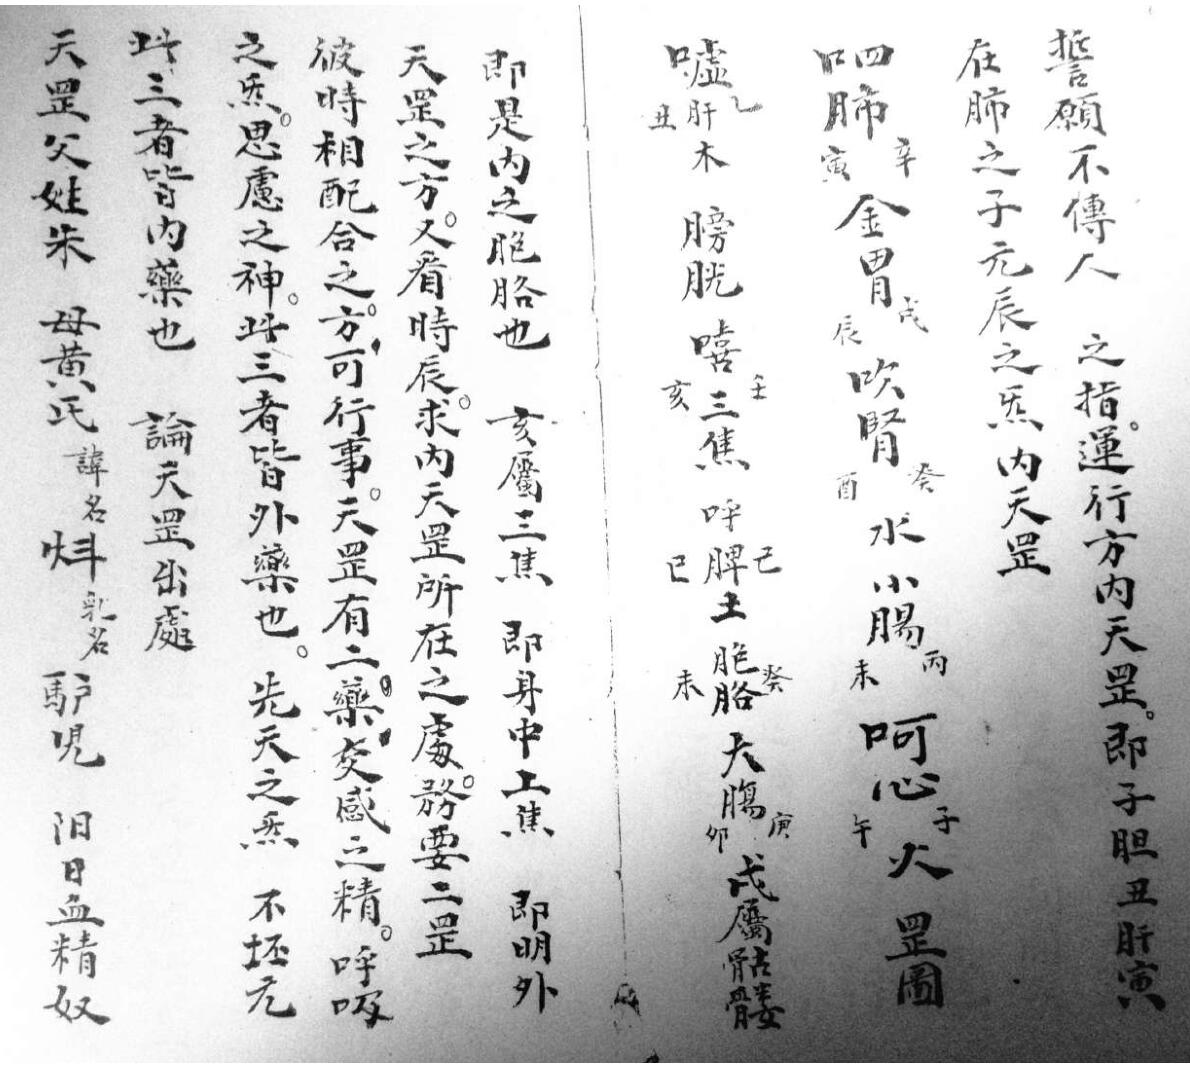 誓願不傳人 之指。運行方內天罡。即子胆丑肝寅
在肺之子元辰之炁內天罡
呬肺辛寅金胃戌辰吹腎癸酉水小腸丙未呵心子午火 罡圖
噓肝乙丑木 膀胱 嘻三焦壬亥 呼脾己巳土胞胳癸未大腸庚卯戌屬骷髏
即是內之胞胳也 亥屬三焦 即身中上焦 即明外
天罡之方。又看時辰。求內天罡所在之處。務要二罡
彼時相配合之。方可行事。天罡有二藥。交感之精。呼吸
之炁。思慮之神。此三者皆外藥也。先天之炁 不坯元
此三者皆內藥也 論天罡出處
天罡父姓朱 母黃氏 諱名㪷 乳名馿児 汨日血精奴